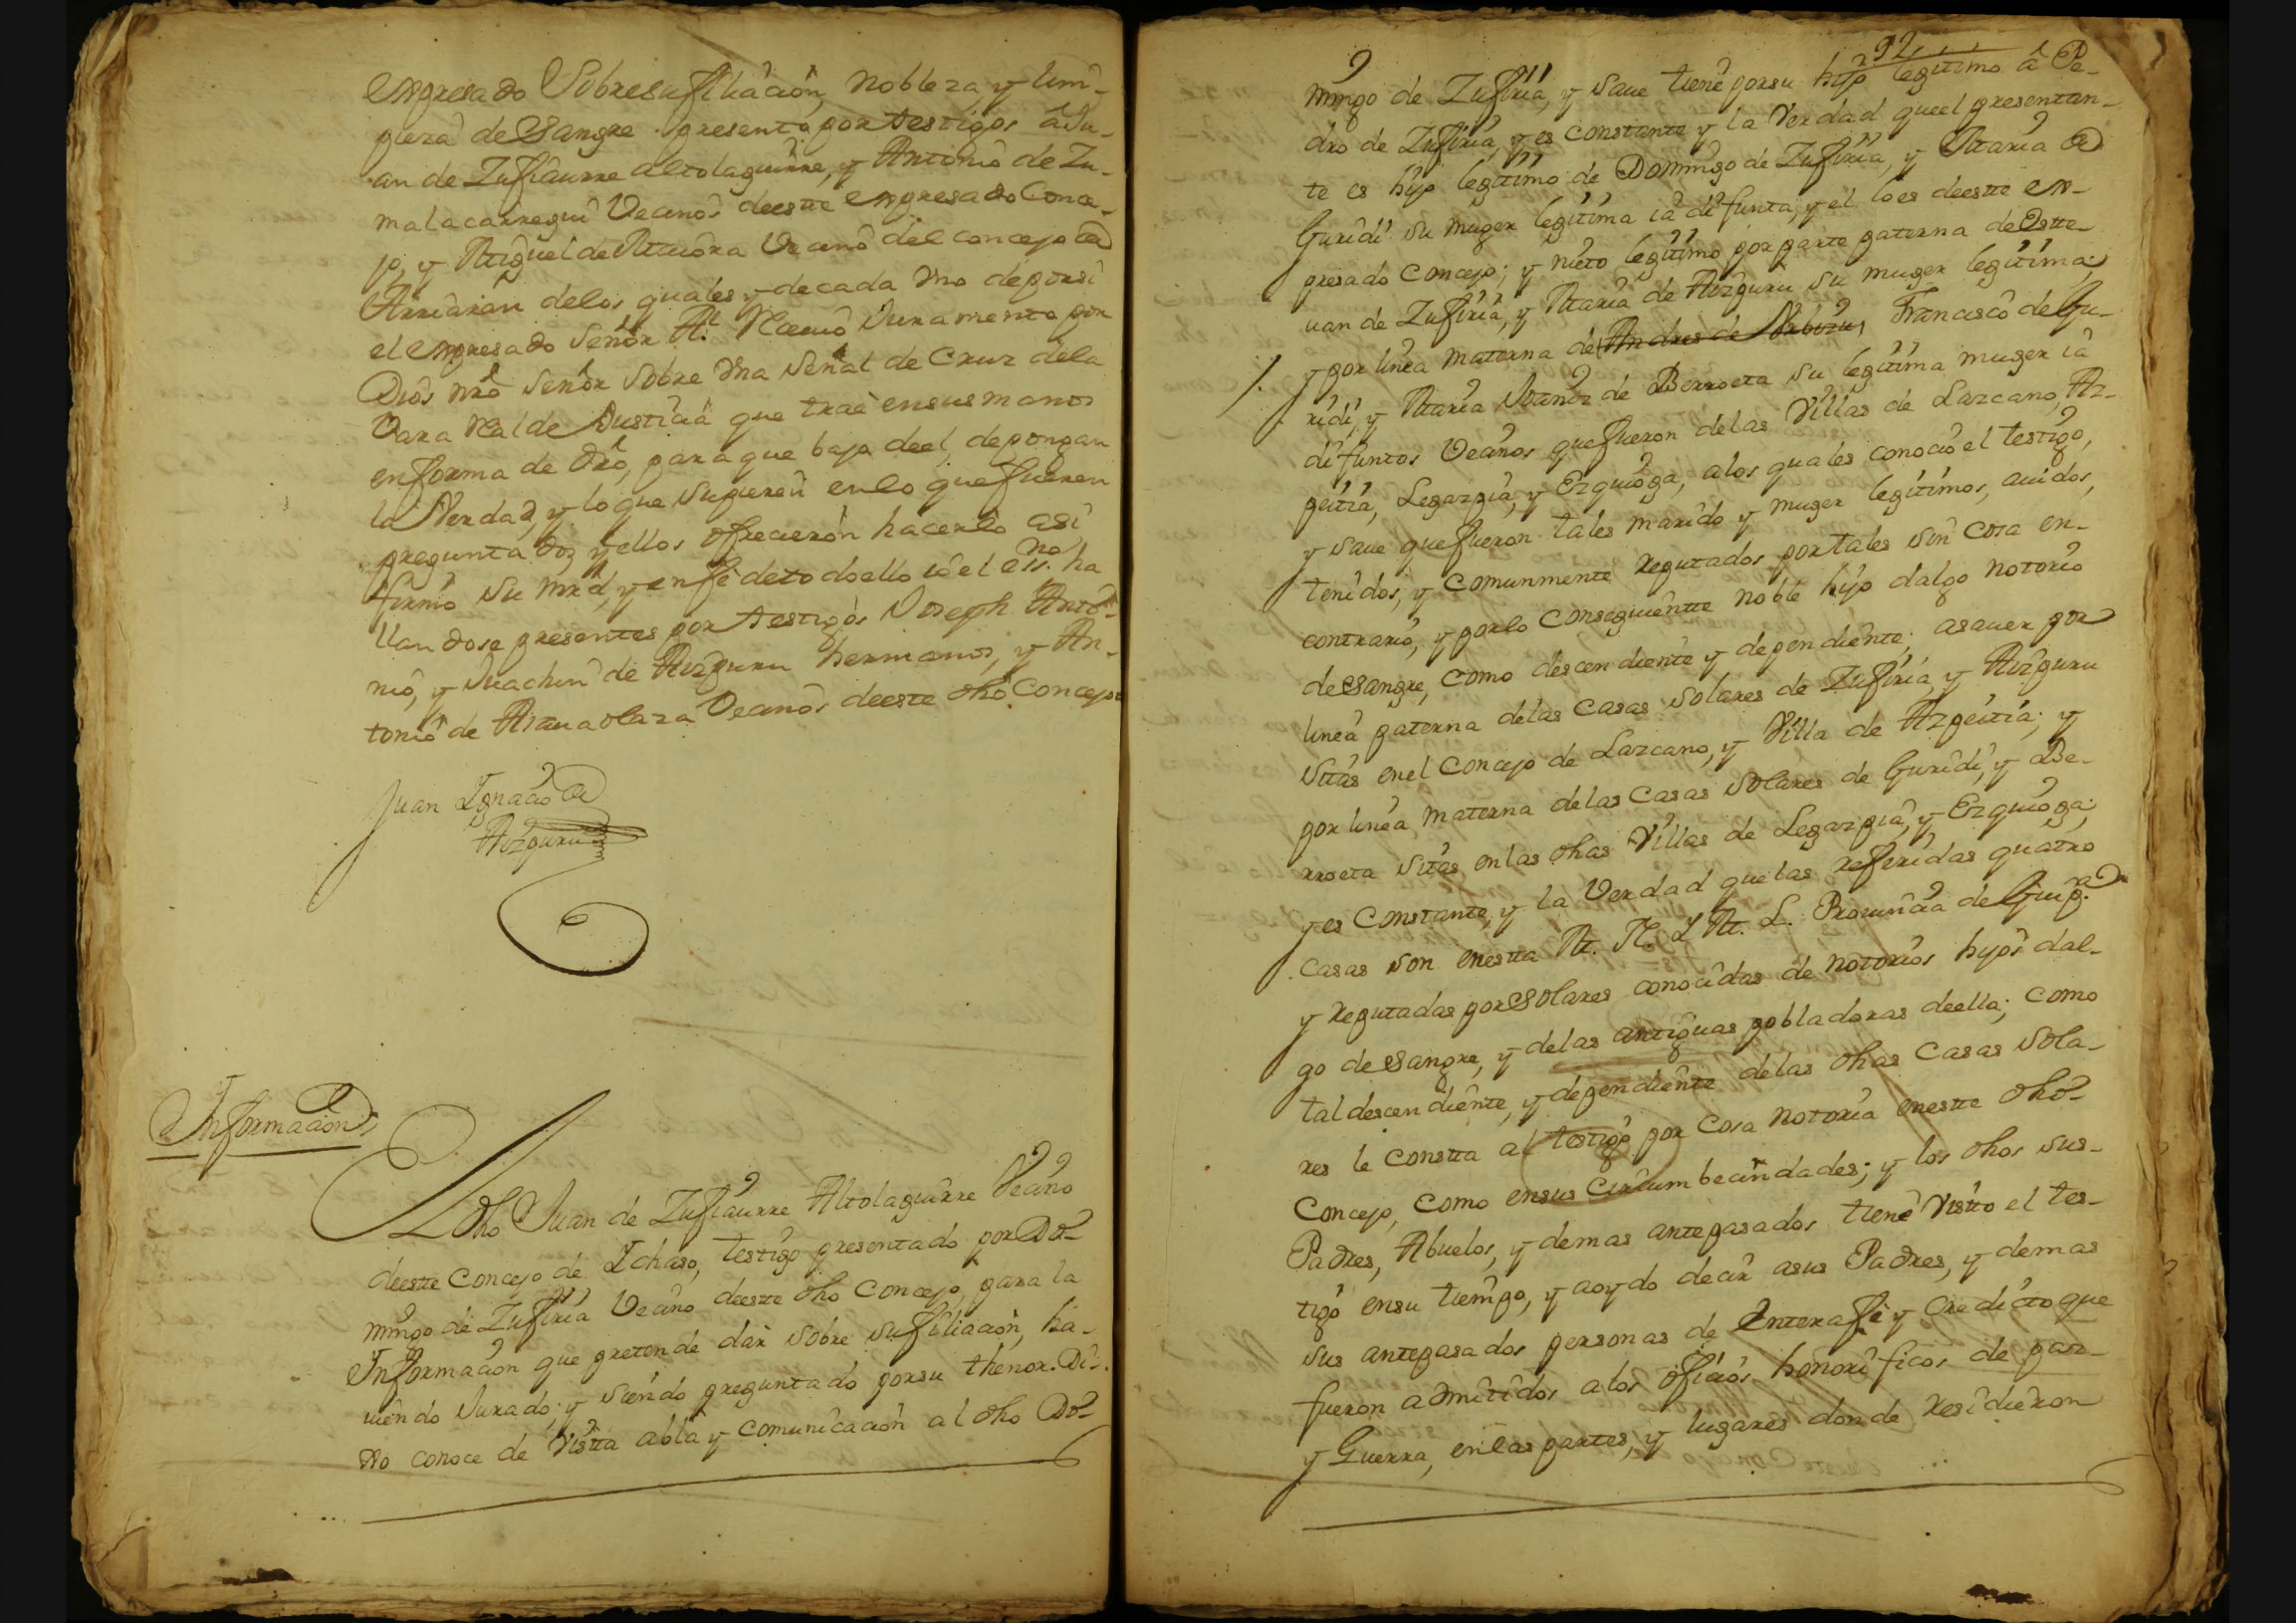 expresado Sobre su filiación, nobleza, y lim-
pieza de Sangre presentó por testigos â Ju-
an de Zufiaurre Altolaguirre, y Antonio de Zu-
malacarregui Vecinos de este expresado Conce-
jo, y Miguel de Mimora Vecino del concejo de
Arriaran delos quales y de cada vno de por si
el expresado Señor Al.e Reciuió Juramento por
Dios nrô Señor sobre vna Señal de Cruz dela
Vara Real de Justicia que trae en sus manos
en forma de drô, para que bajo de el, depongan
la Verdad, y lo que supieren en lo que fueren
preguntados, y ellos ofrecieron hacerlo asi
firmó su mrd, y en fé de todo ello io el ess.no ha
llandose presentes por testigos Joseph Anto-
nio, y Juachin de Aizpuru hermanos, y An-
tonio de Aranaolaza Vecinos de este dho Concejo
Juan Ignacio de
Aizpuru
Informacion
El dho Juan de Zufiaurre Altolaguirre Vecino
de este Concejo de Ichaso, testigo presentado por Do-
mingo de Zufiria Vecino de este dho Concejo, para la
Informacion que pretende dar sobre su filiacion, ha-
uiendo Jurado; y siendo preguntado por su thenor. Di-
xo conoce de Vistta abla y comunicacion al dho Do-
92
mingo de Zufiria, y saue tiene por su hijo legitimo â Pe-
dro de Zufiria, y es constante y la Verdad que el presentan-
te es hijo legitimo de Domingo de Zufiria, y Maria de
Guridi su muger legitima ia difunta, y el lo es de este ex-
presado Concejo; y nieto legitimo por parte paterna de Este-
uan de Zufiria, y Maria de Aizpuru su muger legitima;
y por linea materna de Andres de Francisco de Gu-
ridi, y Maria Ibañez de Berroeta su legitima muger iâ
difuntos Vecinos que fueron delas Villas de Lazcano, Az-
peitia, Legazpia, y Ezquioga, alos quales conoció el testigo,
y saue que fueron tales marido y muger legitimos, auidos,
tenidos, y comunmente Reputados por tales sin cosa en-
contrario, y por lo conseguientte noble hijo dalgo notorio
de Sangre, como descendiente y dependiente; asauer por
linea paterna delas Casas Solares de Zufiria, y Aizpuru
Sitas en el Concejo de Lazcano, y Villa de Azpeitia; y
por linea materna delas Casas Solares de Guridi, y Be-
rroeta Sitas en las dhas Villas de Legazpia, y Ezquioga;
y es Constante, y la Verdad que las referidas quatro
Casas son en estta M. N. Y M. L. Provincia de Guip.a
y Reputadas por Solares conocidas de notorios hijos dal-
go de Sangre, y delas antiguas pobladoras de ella; como
tal descendiente, y dependiente delas dhas Casas Sola-
res le constta al testigo por Cosa notoria en estte dho
Concejo, como en sus Circumbecindades; y los dhos sus
Padres, Abuelos, y demas antepasados tiene Vistto el tes-
tigo en su tiempo, y a oydo decir asus Padres, y demas
sus antepasados personas de Entera fé y Credicto que
fueron admitidos alos oficios honorificos de paz
y Guerra, en las partes, y lugares donde Residieron